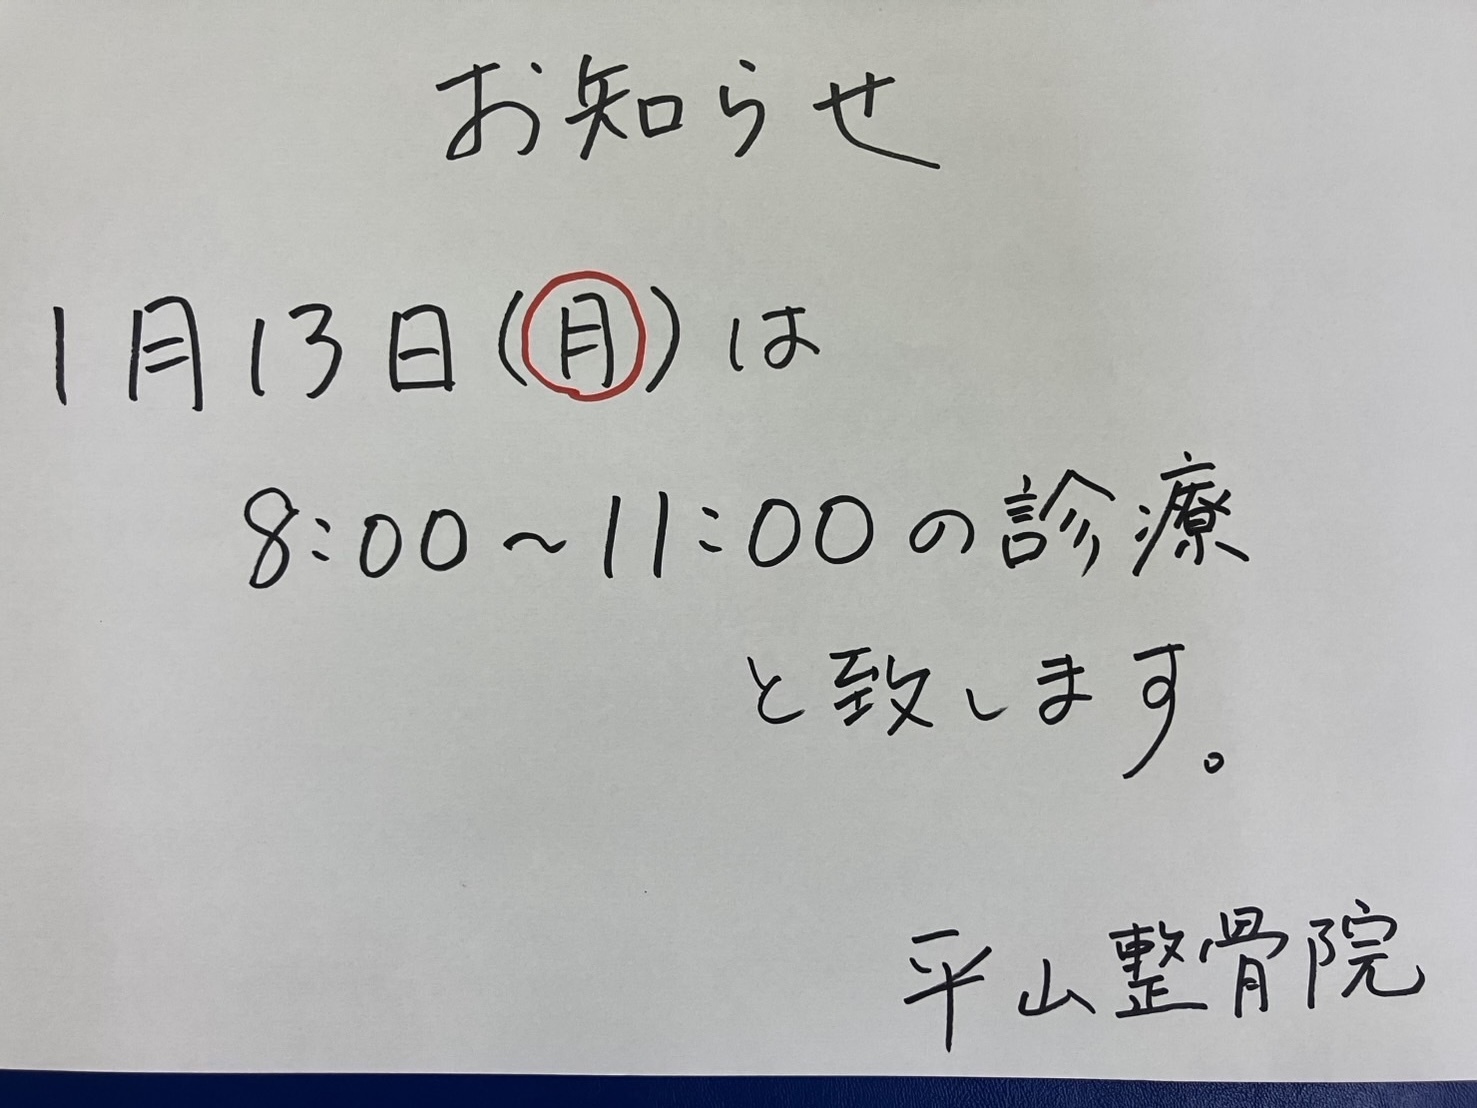 お知らせ
1月13日(月)は
8:00～11:00の診療
と致します。
平山整骨院